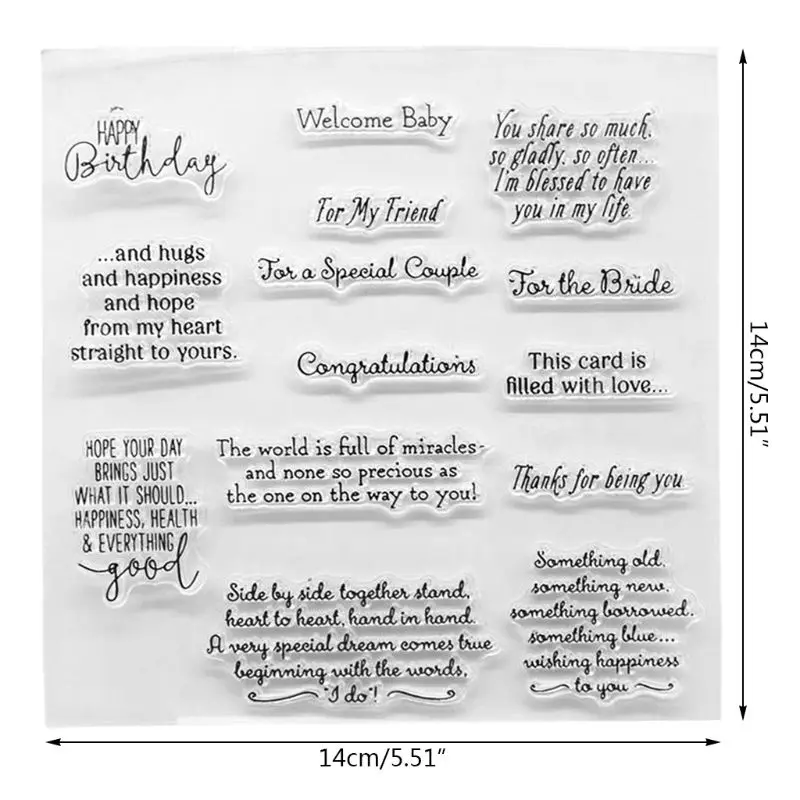 HAPPY
Birthday
...and hugs
and happiness
and hope
from my heart
straight to yours.
HOPE YOUR DAY
BRINGS JUST
WHAT IT SHOULD...
HAPPINESS, HEALTH
& EVERYTHING
good
Welcome Baby
For My Friend
For a Special Couple
Congratulations
The world is full of miracles-
and none so precious as
the one on the way to you!
Side by side together stand,
heart to heart, hand in hand.
A very special dream comes true
beginning with the words,
"I do"!
You share so much,
so gladly, so often...
I'm blessed to have
you in my life.
For the Bride
This card is
filled with love...
Thanks for being you
Something old,
something new,
something borrowed,
something blue...
wishing happiness
to you
14cm/5.51"
14cm/5.51"